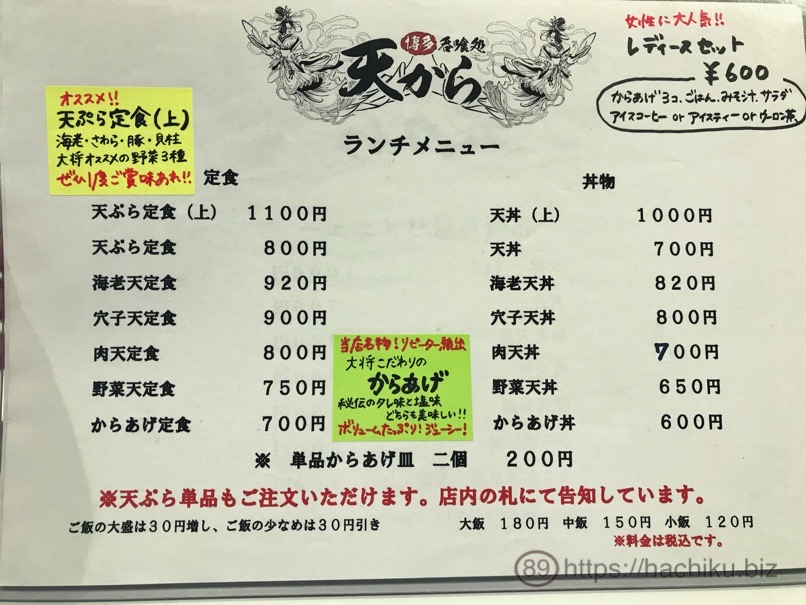 博多 呑喰処
天から
ランチメニュー
女性に大人気!!
レディースセット
¥600
からあげ3コ、ごはん、みそ汁、サラダ
アイスコーヒー or アイスティー or ウーロン茶
オススメ!!
天ぷら定食(上)
海老・さわら・豚・貝柱
大将オススメの野菜3種
ぜひ1度ご賞味あれ!!
定食
天ぷら定食(上) 1100円
天ぷら定食 800円
海老天定食 920円
穴子天定食 900円
肉天定食 800円
野菜天定食 750円
からあげ定食 700円
丼物
天丼(上) 1000円
天丼 700円
海老天丼 820円
穴子天丼 800円
肉天丼 700円
野菜天丼 650円
からあげ丼 600円
当店名物!リピーター続出
大将こだわりの
からあげ
秘伝のタレ味と塩味
どちらも美味しい!!
ボリュームたっぷり!ジューシー!
※ 単品からあげ皿 二個 200円
※天ぷら単品もご注文いただけます。店内の札にて告知しています。
ご飯の大盛は30円増し、ご飯の少なめは30円引き
大飯 180円 中飯 150円 小飯 120円
※料金は税込です。
89 https://hachiku.biz